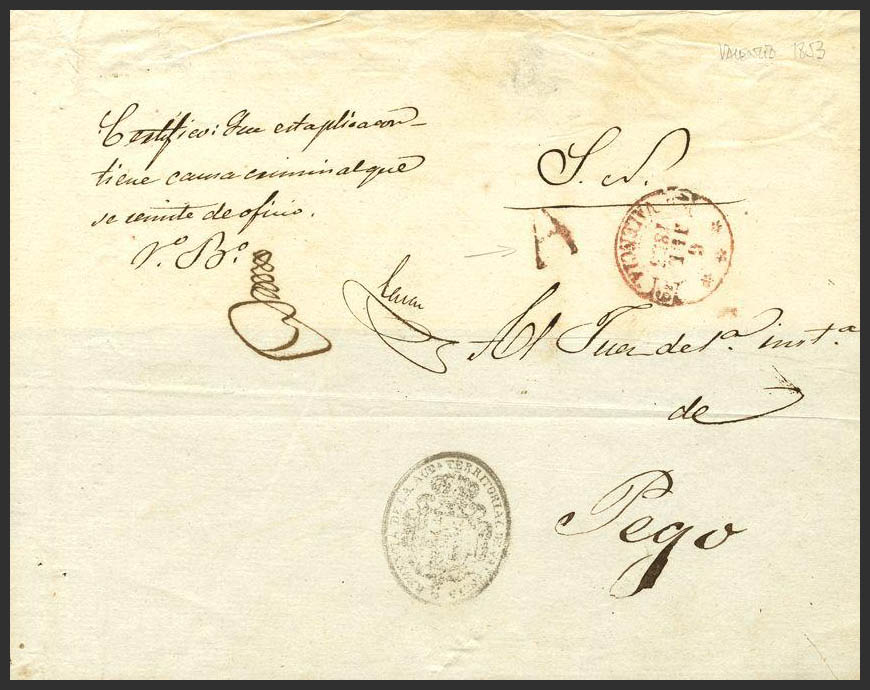 VALENCIA 1853
Certifico: Que esta plica con-
tiene causa criminal que
se remite de oficio.
V.º B.º
S. N.
A
VALENCIA
6
JUL
185
Al Juez de 1.ª inst.ª
de
Pego
DE LA AUD.ª TERRITORIAL DE